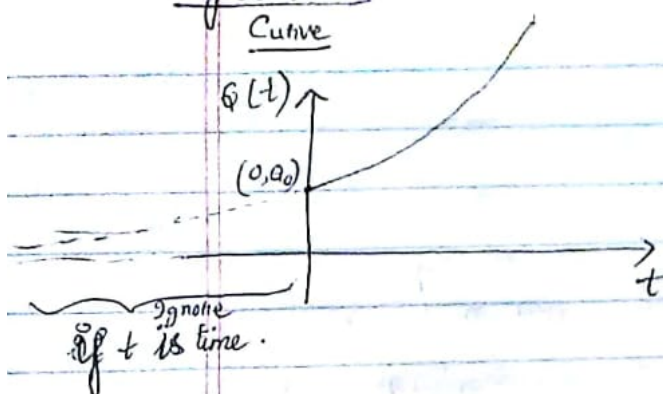 Curve
Q(t)
(0,Q₀)
t
Ignore
if t is time.